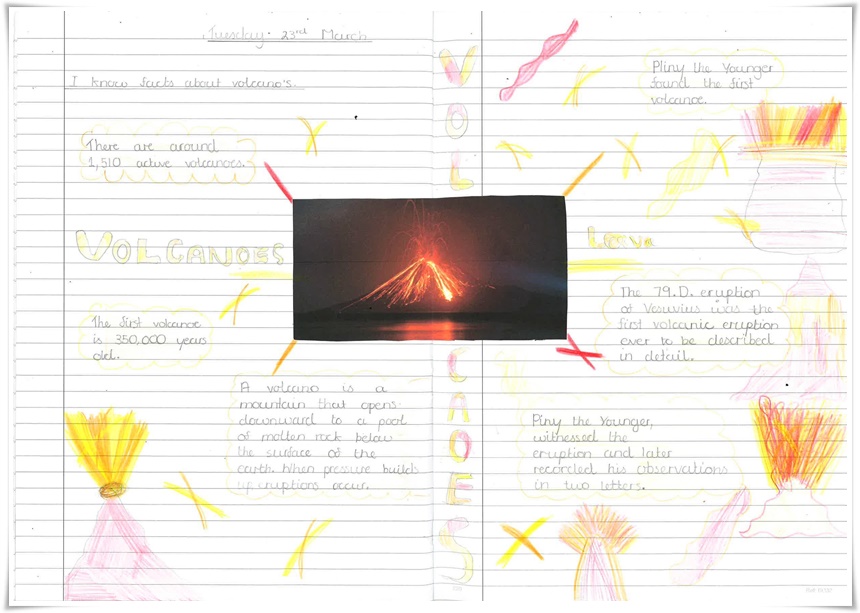 Tuesday 23rd March
I know facts about volcano's.
There are around
1,510 active volcanoes.
VOLCANOES
The first volcanoe
is 350,000 years
old.
A volcano is a
mountain that opens
downward to a pool
of molten rock below
the surface of the
earth. When pressure builds
up eruptions occur.
V
O
L
C
A
O
E
S
Pliny the Younger
found the first
volcanoe.
Lava
The 79.D. eruption
of Vesuvius was the
first volcanic eruption
ever to be described
in detail.
Piny the Younger,
witnessed the
eruption and later
recorded his observations
in two letters.